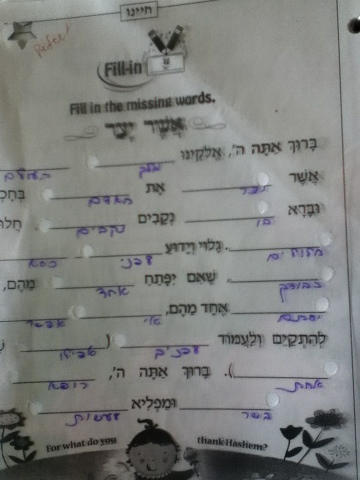 חיינו
Fill-in
Fill in the missing words.
אֲשֶׁר יָצַר
בָּרוּךְ אַתָּה ה', אֱלֹקֵינוּ מלך העולם
אֲשֶׁר יצר אֶת האדם
וּבָרָא בו נְקָבִים נקבים
חלולים. גָּלוּי וְיָדוּעַ לפני כסא
כבודך, שֶׁאִם יִפָּתֵחַ אחד מֵהֶם,
יסתם אֶחָד מֵהֶם, אי אפשר
לְהִתְקַיֵּם וְלַעֲמוֹד לפניך (אפילו
אחת). בָּרוּךְ אַתָּה ה', רופא
בשר וּמַפְלִיא לעשות
For what do you thank Hashem?